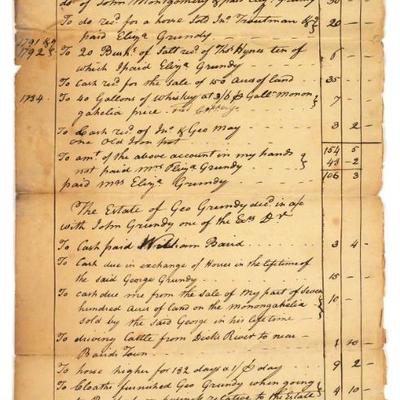 do of John Montgomery & paid Eliza Grundy 30 -
To do recd for a horse Sold Jno Troutman & paid Eliza Grundy 20 -
1791 &
1792
To 20 Bushs of Salt recd of Thos Hynes ten of
which I paid Eliza Grundy 6 -
To Cash recd for the Sale of 100 Acres of land 35 -
1784 To 40 Gallons of Whiskey at 3/6 P Galln monon
gahelia price 7 -
To Cash recd of Jno & Geo May 3 2
One Old Iron pot
154 5
To amt of the above account in my hands
not paid Mrs Eliza Grundy 48 -2
paid mrs Eliza Grundy 106 3
The Estate of Geo Grundy decd in a/c
with John Grundy one of the Exrs Dr
To Cash paid William Baird 3 4 -
To Cash due in exchange of Horses in the lifetime of
the said George Grundy 15 -
To cash due me from the Sale of My part of Seven
hundred Acres of land on the Monongahelia 10 -
sold by the Said George in his lifetime
To driving Cattle from Dicks River to near
Bairds Town 1 10 -
To horse higher for 182 days at 1/ P day 9 2 -
To Cloaths furnished Geo Grundy when going 4 10 -
relative to the Estate